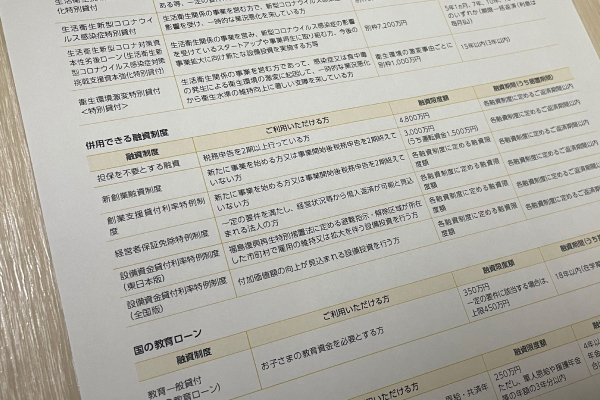 ある等、一定の要
化特別貸付
生活衛生新型コロナウイルス感染症特別貸付
生活衛生関係の事業を営み、新型コロナウイルス感染症の影響を受け、一時的な業況悪化を来している方
生活衛生新型コロナ対策資本性劣後ローン(生活衛生新型コロナウイルス感染症対策挑戦支援資本強化特別貸付)
生活衛生関係の事業を営み、新型コロナウイルス感染症の影響を受けているスタートアップや事業再生に取り組む方、今後の事業拡大に向け新たな設備投資を実施する方等
別枠7,200万円
5年1か月、7年、10年、
のいずれか(期限一括返済(利息は毎月払))
衛生環境激変特別貸付
<特別貸付>
生活衛生関係の事業を営む方であって、感染症又は食中毒の発生による衛生環境の激変に起因して、一時的な業況悪化から衛生水準の維持向上に著しい支障を来している方
衛生環境の激変事由ごとに別枠1,000万円
15年以内(3年以内)
併用できる融資制度
融資制度
ご利用いただける方
融資限度額
融資期間(うち据置期間)
担保を不要とする融資
税務申告を2期以上行っている方
4,800万円
各融資制度に定めるご返済期間以内
新創業融資制度
新たに事業を始める方又は事業開始後税務申告を2期終えていない方
3,000万円
(うち運転資金1,500万円)
各融資制度に定めるご返済期間以内
創業支援貸付利率特例制度
新たに事業を始める方又は事業開始後税務申告を2期終えていない方
各融資制度に定める融資限度額
各融資制度に定めるご返済期間以内
経営者保証免除特例制度
一定の要件を満たし、経営状況等から借入返済が可能と見込まれる法人の方
各融資制度に定める融資限度額
各融資制度に定めるご返済期間以内
設備資金貸付利率特例制度
(東日本版)
福島復興再生特別措置法に定める避難指示・解除区域が所在した市町村で雇用の維持又は拡大を伴う設備投資を行う方
各融資制度に定める融資限度額
各融資制度に定めるご返済期間以内
設備資金貸付利率特例制度
(全国版)
付加価値額の向上が見込まれる設備投資を行う方
各融資制度に定める融資限度額
各融資制度に定めるご返済期間以内
国の教育ローン
融資制度
ご利用いただける方
融資限度額
融資期間(うち
教育一般貸付
教育ローン)
お子さまの教育資金を必要とする方
350万円
一定の要件に該当する場合は、上限450万円
18年以内(在学
ご利用いただける方
融資限度額
恩給・共済年
250万円
ただし、軍人恩給や援護年金等の年額の3年分以内
4年以